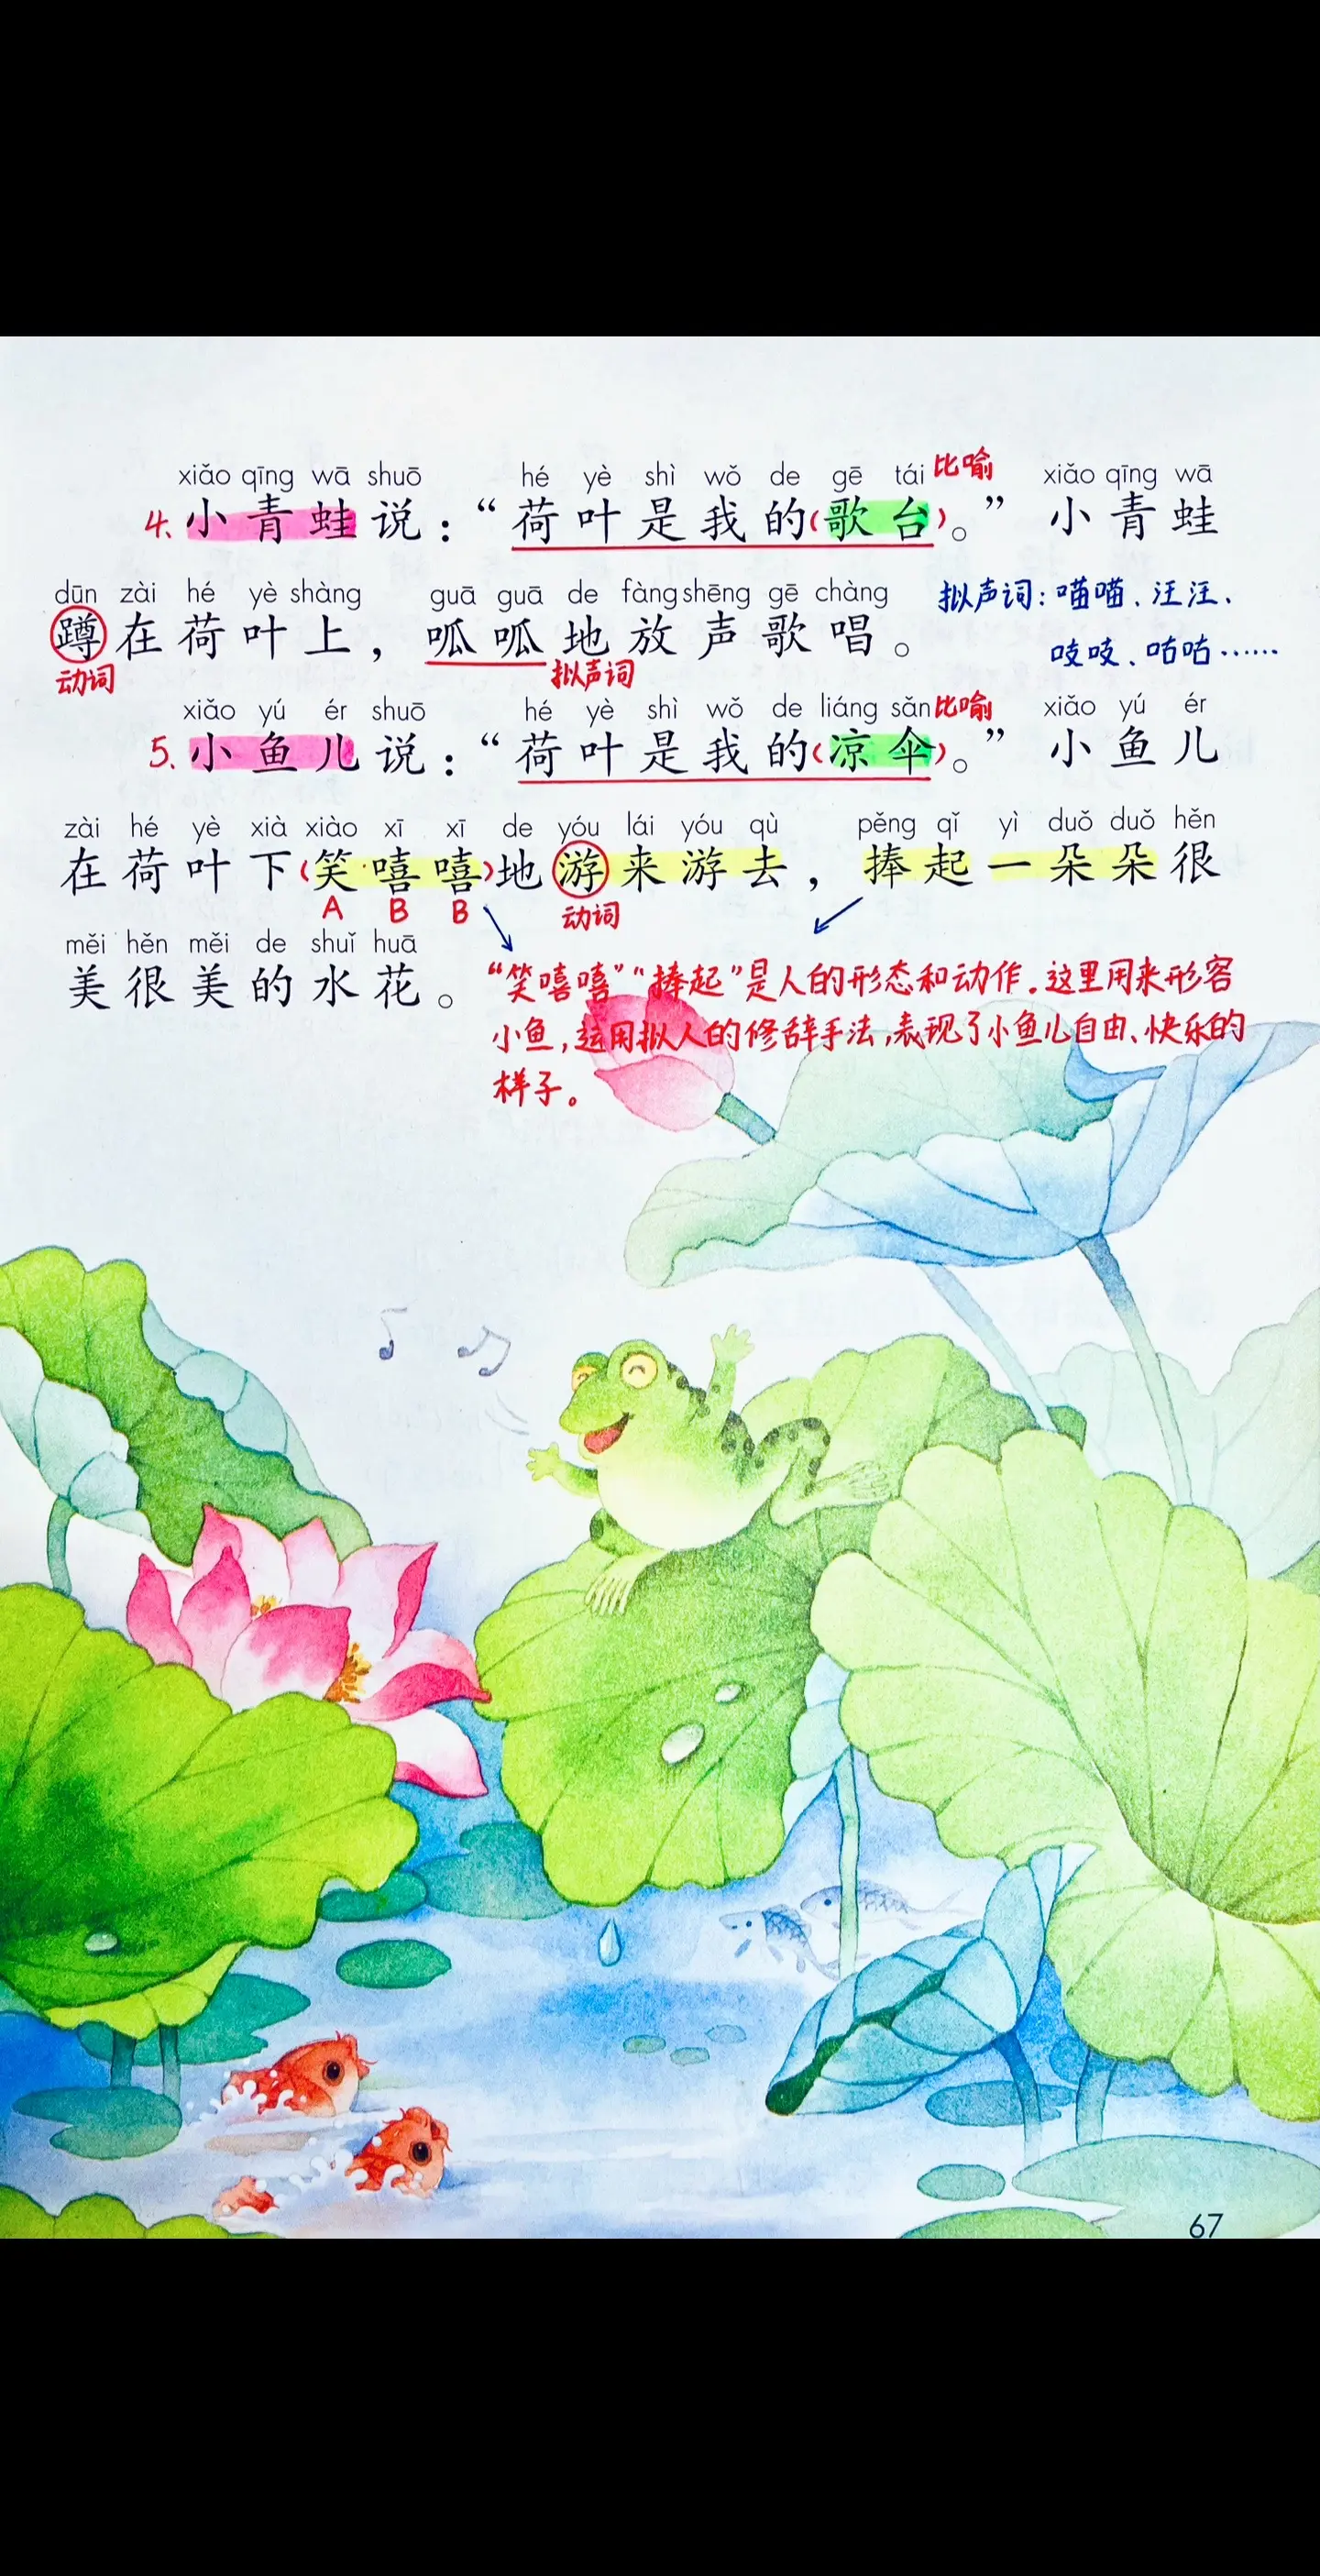 xiǎo qīng wā shuō hé yè shì wǒ de gē tái 比喻 xiǎo qīng wā
4. 小青蛙说：“荷叶是我的(歌台)。”小青蛙
dūn zài hé yè shàng guā guā de fàng shēng gē chàng 拟声词：喵喵、汪汪、
蹲在荷叶上，呱呱地放声歌唱。 吱吱、咕咕……
动词 拟声词
xiǎo yú ér shuō hé yè shì wǒ de liáng sǎn 比喻 xiǎo yú ér
5. 小鱼儿说：“荷叶是我的(凉伞)。”小鱼儿
zài hé yè xià xiào xī xī de yóu lái yóu qù pěng qǐ yì duǒ duǒ hěn
在荷叶下(笑嘻嘻)地游来游去，捧起一朵朵很
A B B 动词
měi hěn měi de shuǐ huā
美很美的水花。 “笑嘻嘻”“捧起”是人的形态和动作.这里用来形容
小鱼,运用拟人的修辞手法,表现了小鱼儿自由、快乐的
样子。
67